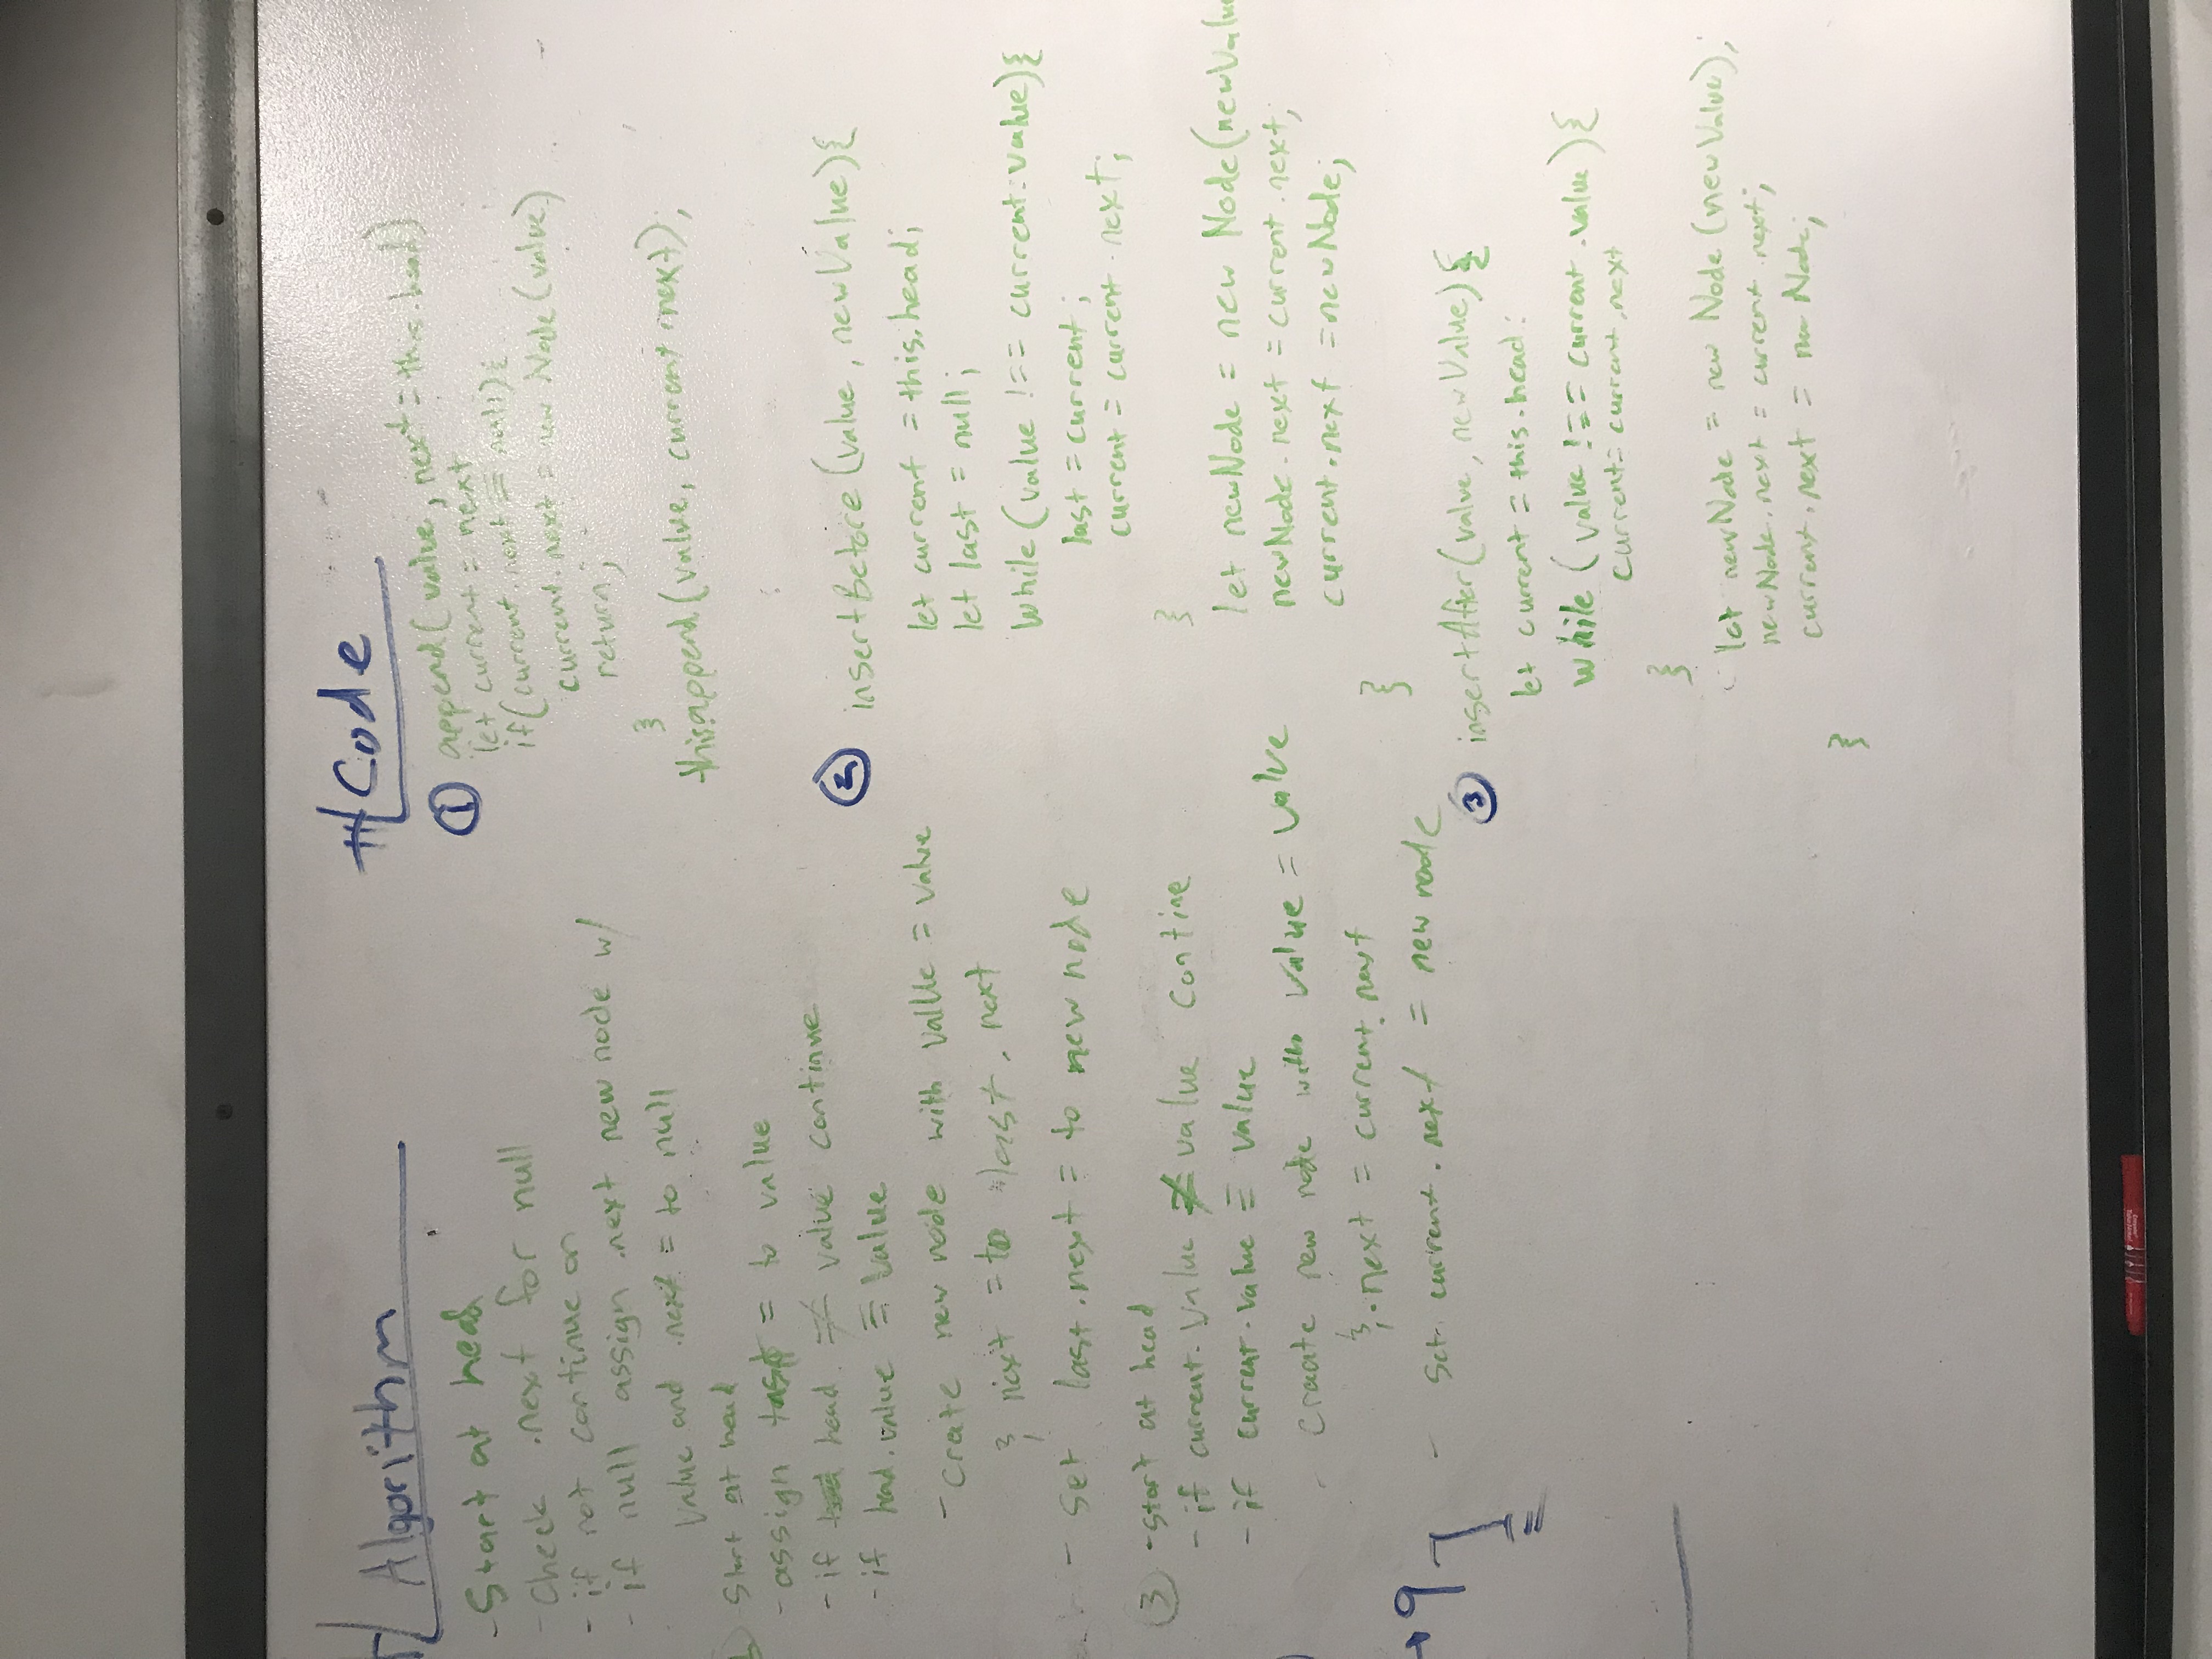 Algorithm
- Start at head
- Check .next for null
- if not continue on
- if null assign .next new node w/
value and .next = to null
Start at head
- assign = to value
- if head ≠ value continue
- if head.value ≡ value
- Crate new node with value = value
& next = to last.next
- Set last.next = to new node
③ - start at head
- if current.value ≢ value contine
- if current.value ≡ value
- Craate new node with value = value
& .next = current.next
- Set current.next = new node
→ 9
# Code
① append( value, next = this.head)
let current = next
if(current.next ≡ null){
current.next = new Node(value)
return;
}
this.append(value, current.next);
② insertBefore(value, newValue){
let current = this.head;
let last = null;
while(value !== current.value){
last = current;
current = current.next;
}
let newNode = new Node(newValue
newNode.next = current.next;
current.next = newNode;
}
③ insertAfter(value, newValue){
let current = this.head;
while (value !== current.value){
current= current.next
}
let newNode = new Node(newValue);
newNode.next = current.next;
current.next = new Node;
}